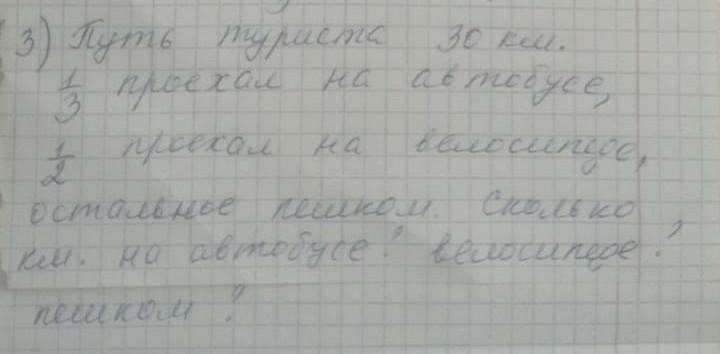 3) Путь туриста 30 км.
1/3 проехал на автобусе,
1/2 проехал на велосипеде,
остальное пешком. Сколько
км. на автобусе? велосипеде?
пешком?